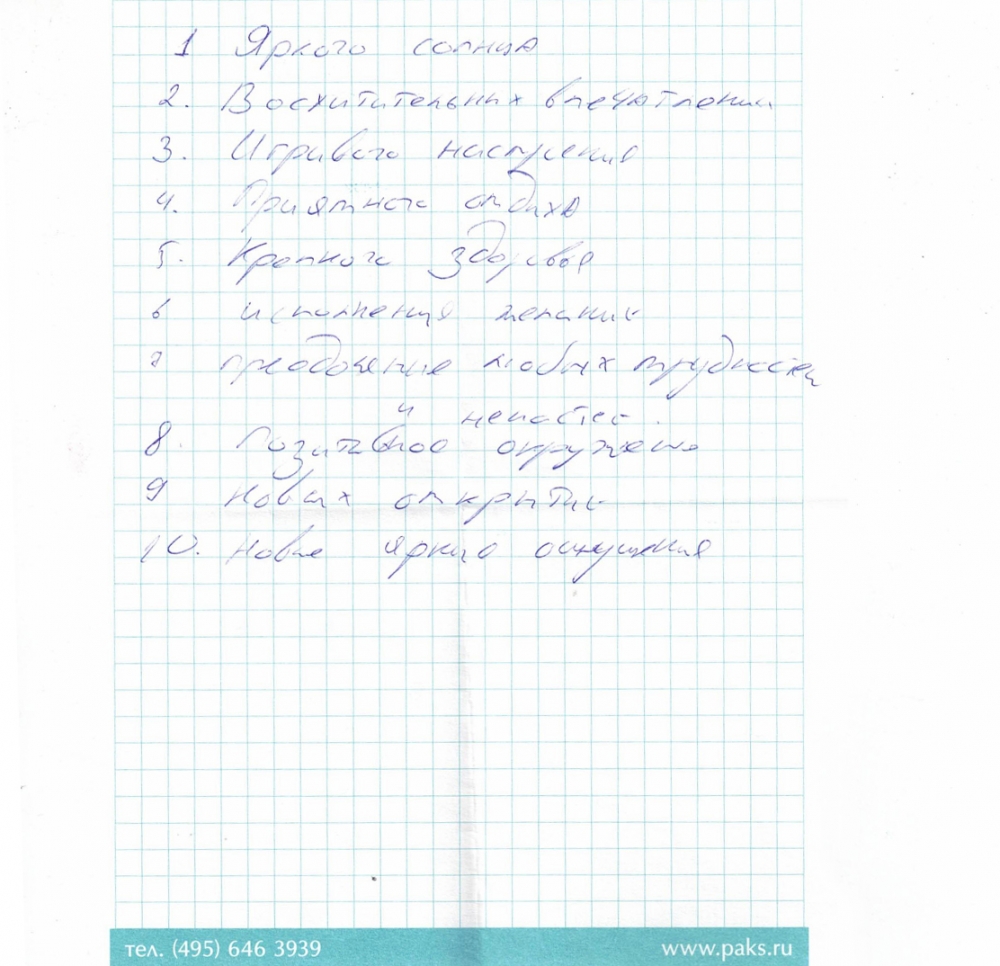 1 Яркого солнца
2. Восхитительных впечатлений
3. Игривого настроения
4. Приятного отдыха
5. Крепкого здоровья
6 исполнения желаний
7 преодоление любых трудностей
и ненастей.
8. Позитивное окружение
9 новых открытий
10. новые яркие ощущения
тел. (495) 646 3939 www.paks.ru